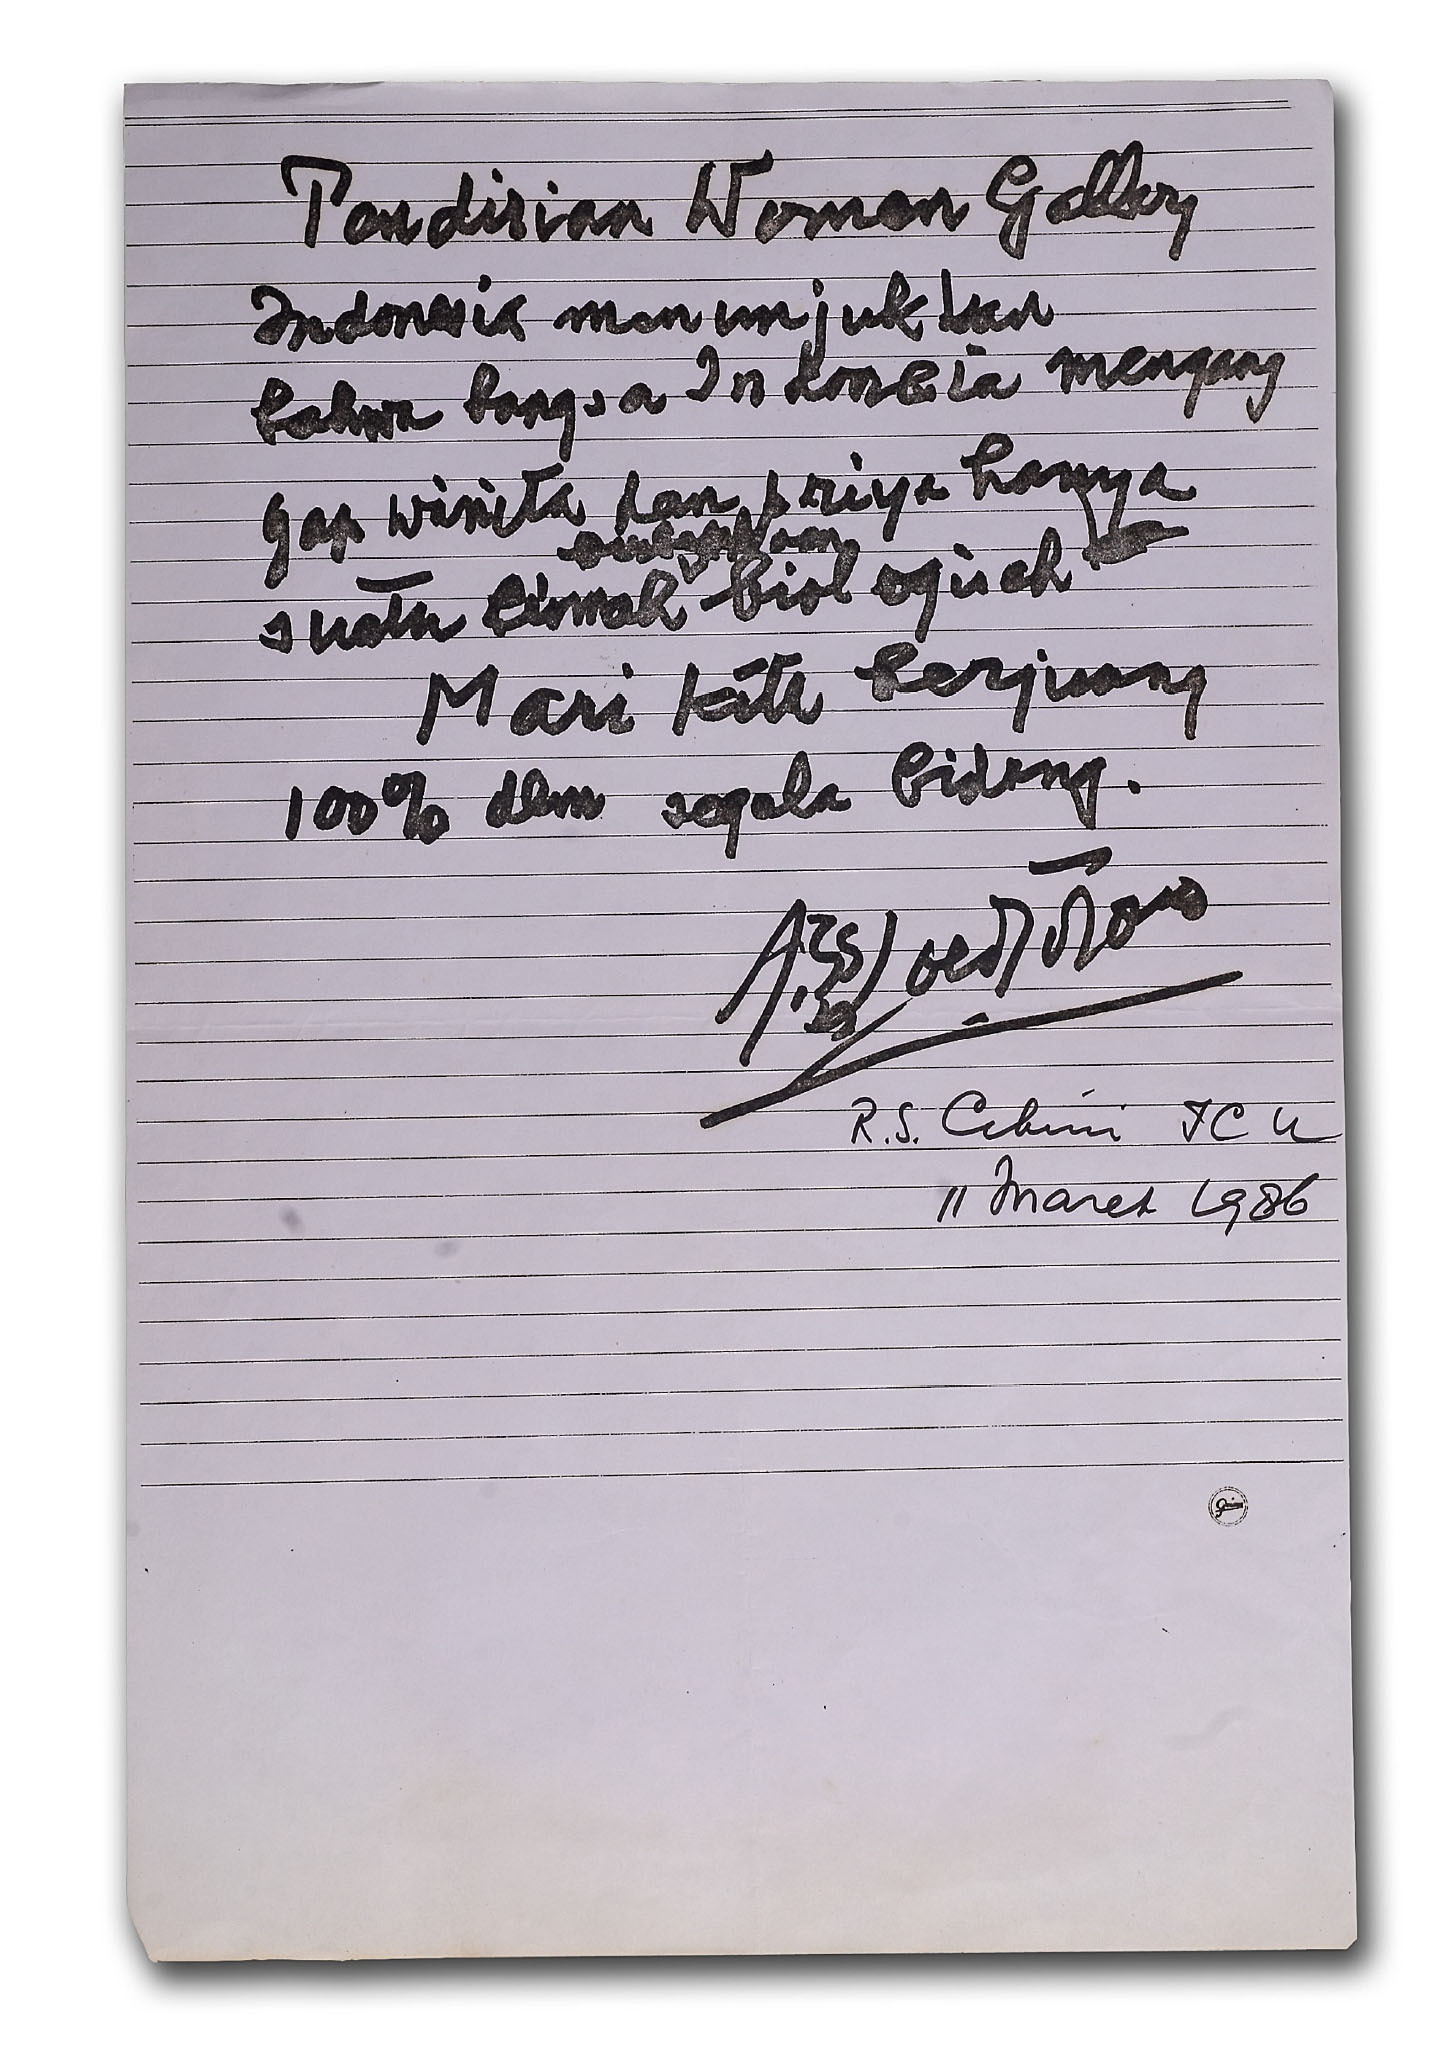 Pendirian Women Gallery
Indonesia menunjukkan
bahwa bangsa Indonesia mengang
gap winita dan priya hanya
suatu biologisch
Mari kita berjuang
100% dlm segala bidang.
R.S. Cikini ICU
11 Maret 1986